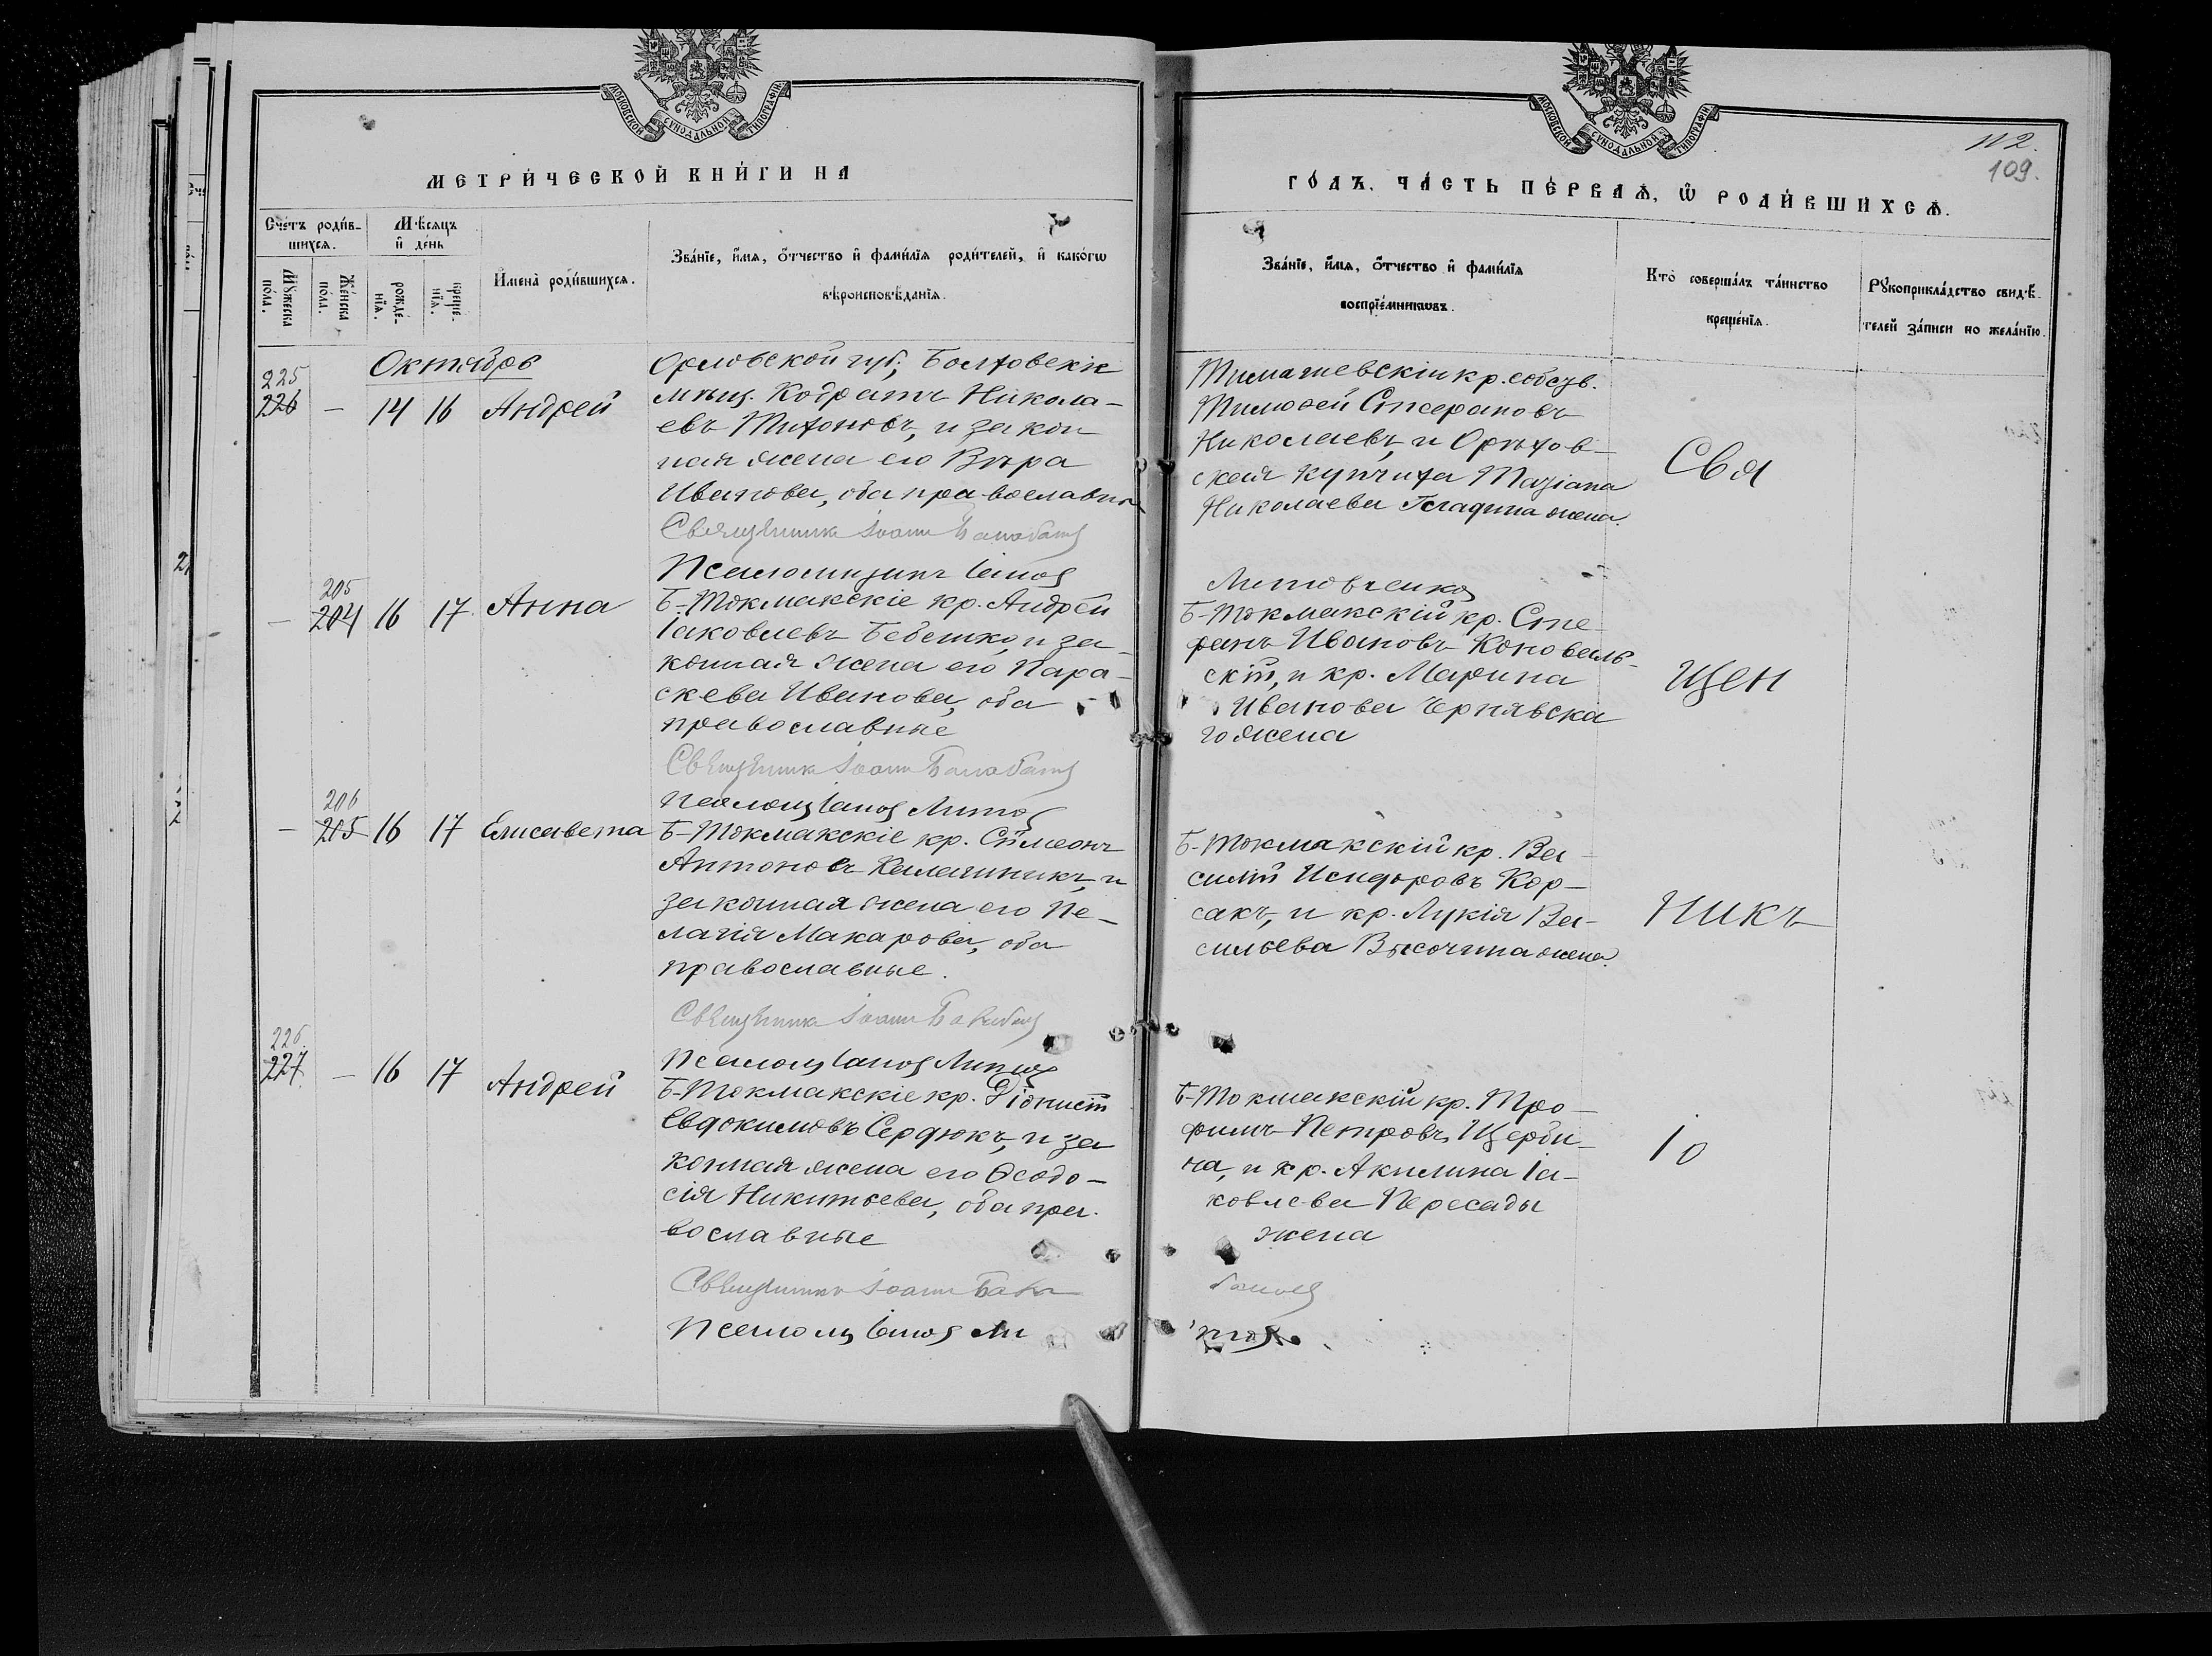 МОСКОВСКОЙ СѴНОДАЛЬНОЙ ТИПОГРАФІИ
МЕТРИ́ЧЕСКОЙ КНИ́ГИ НА
Сче́тъ роди́в-
шихся.
Мѣ́сяцъ
и҆ де́нь
Мꙋ́жеска
по́ла.
Же́нска
по́ла.
рожде́-
нїя.
креще́-
нїя.
И҆мена̀ роди́вшихся.
Зва́нїе, и҆́мя, ѻ҆́тчество и҆ фами́лїя роди́телей, и҆ како́гѡ
вѣроисповѣ́данїя.
Октябрь
225
226 — 14 16 Андрей
Орловской губ., Болховскіе
мѣщ. Кодратъ Никола-
евъ Тихоновъ, и закон
ная жена его Вѣра
Иванова, оба православн
Священникъ Іоаннъ
205
— 204 16 17 Анна
Б-Токмакскіе кр. Андрей
Іаковлевъ Бебешко, и за-
конная жена его Пара-
скева Иванова, оба
православные
Священникъ Іоаннъ
206
— 205 16 17 Елисавета
Б-Токмакскіе кр. Сѵмеонъ
Антоновъ Калашникъ, и
законная жена его Пе-
лагія Макарова, оба
православные.
Священникъ Іоаннъ
226.
227. — 16 17 Андрей
Б-Токмакскіе кр. Діонисій
Евдокимовъ Сердюкъ, и за
конная жена его Ѳеодо-
сія Никитьева, оба пра-
вославные
Священникъ Іоаннъ
МОСКОВСКОЙ СѴНОДАЛЬНОЙ ТИПОГРАФІИ
112.
109.
ГО́ДЪ, ЧА́СТЬ ПЕ́РВАѦ, Ѡ҆ РОДИ́ВШИХСѦ.
Зва́нїе, и҆́мя, ѻ҆́тчество и҆ фами́лїя
воспрїе́мникѡвъ.
Кто̀ соверша́лъ та́инство
креще́нїя.
Рꙋкоприкла́дство свидѣ́-
телей за́писи по жела́нїю.
Тимашевскій кр. собств.
Тимоѳей Стефановъ
Николаевъ, и Орѣхов-
ская купчиха Татіана
Николаева Гладина жена.
Свя
Литовченко
Б-Токмакскій кр. Сте-
фанъ Ивановъ Коноваль-
скій, и кр. Марина
Иванова Чернявска
го жена
щен
Б-Токмакскій кр. Ва-
силій Исидоровъ Кор-
сакъ, и кр. Лукія Ва-
сильева Высочина жена.
никъ
Б-Токмакскій кр. Тро-
фимъ Петровъ Щерби-
на, и кр. Акилина Іа-
ковлева Пересады
жена
Іо